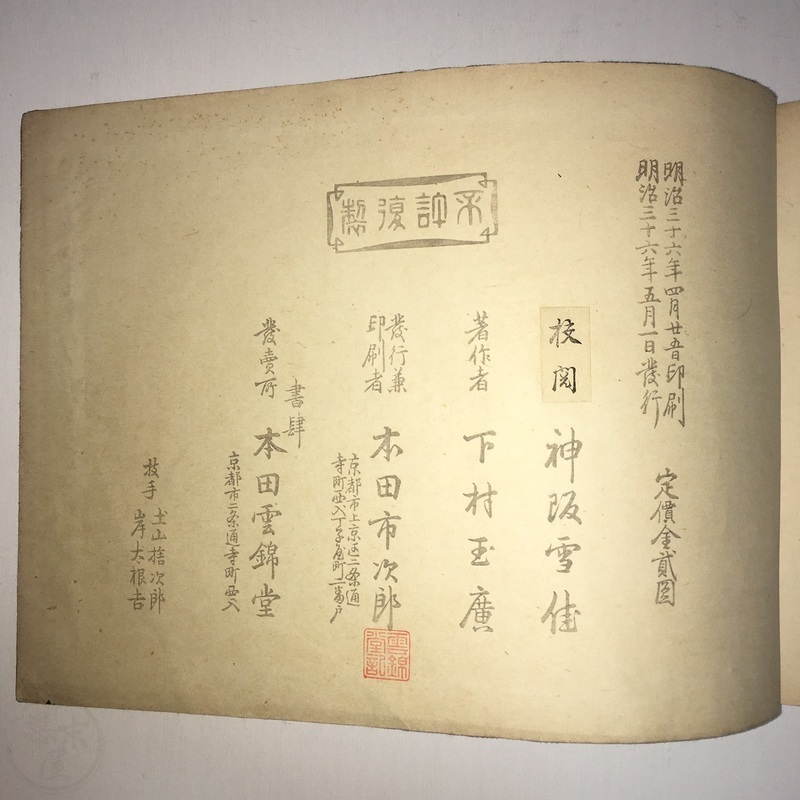 明治三十六年四月廿五日印刷
明治三十六年五月一日發行
定價金貳圓
校閲
神阪雪佳
著作者
下村玉廣
不許復製
發行兼
印刷者
本田市次郎
京都市上京区二条通
寺町西入丁子屋町一番戸
雲錦堂記
書肆
發賣所
本田雲錦堂
京都市二条通寺町西入
技手
土山捨次郎
岸太根吉